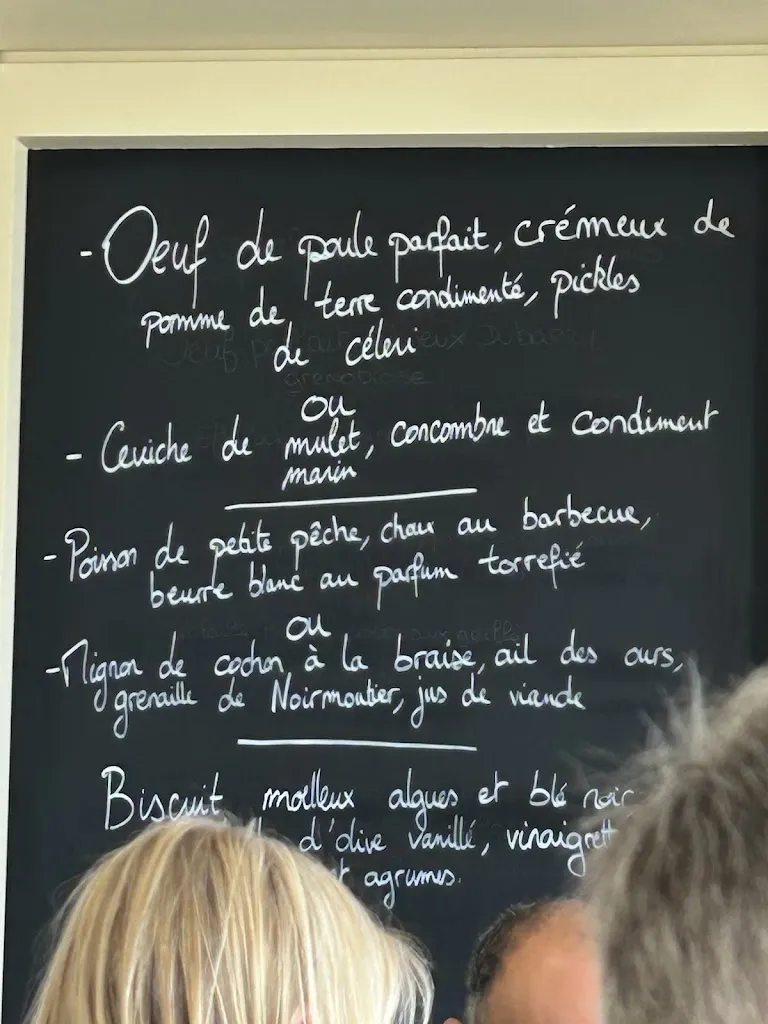 - Oeuf de poule parfait, crémeux de
pomme de terre condimenté, pickles
de céleri
ou
- Ceviche de mulet, concombre et condiment
marin
- Poisson de petite pêche, chou au barbecue,
beurre blanc au parfum torrefié
ou
- Mignon de cochon à la braise, ail des ours,
grenaille de Noirmoutier, jus de viande
Biscuit moelleux algues et blé noir
d'olive vanillé,
agrumes.